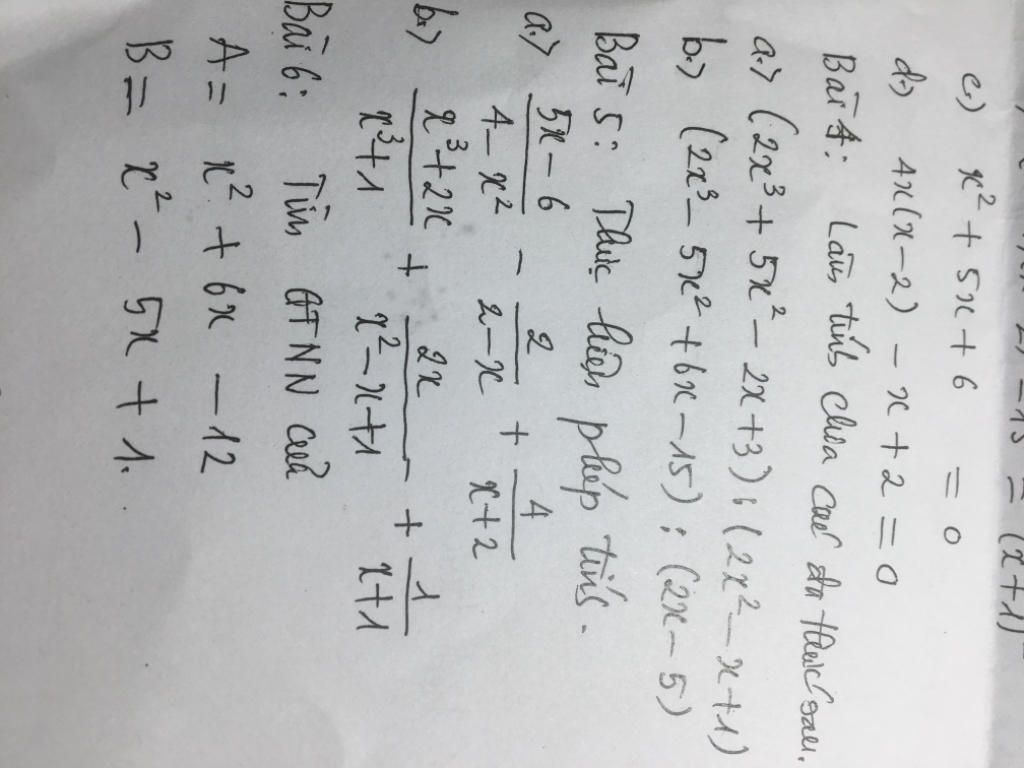 2) - 15 = (x+1)
c.) x² + 5x + 6 = 0
d.) 4x(x-2) - x + 2 = 0
Bài 4: Làm tính chia các đa thức sau.
a.) (2x³ + 5x² - 2x + 3) : (2x² - x + 1)
b.) (2x³ - 5x² + 6x - 15) : (2x - 5)
Bài 5: Thực hiện phép tính.
a.) \frac{5x - 6}{4 - x²} - \frac{2}{2 - x} + \frac{4}{x + 2}
b.) \frac{x³ + 2x}{x³ + 1} + \frac{2x}{x² - x + 1} + \frac{1}{x + 1}
Bài 6: Tìm GTNN của
A = x² + 6x - 12
B = x² - 5x + 1.